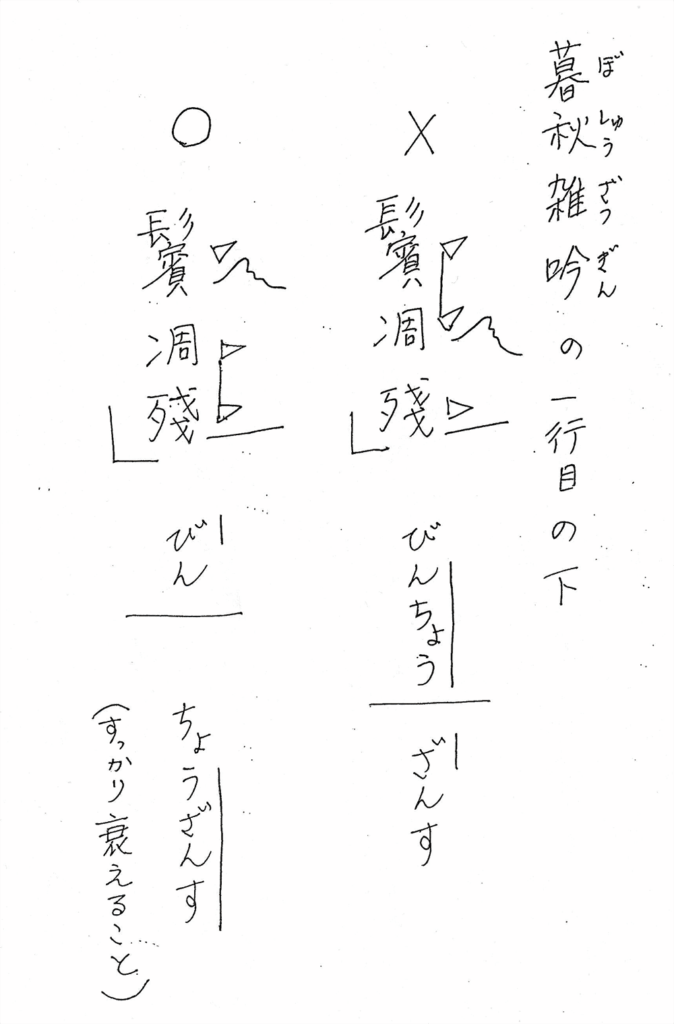 暮秋雑吟の一行目の下
ぼしゅうざつぎん
×
鬢凋残
びんちょう
ざんす
○
鬢凋残
びん
ちょうざんす
(すっかり衰えること)